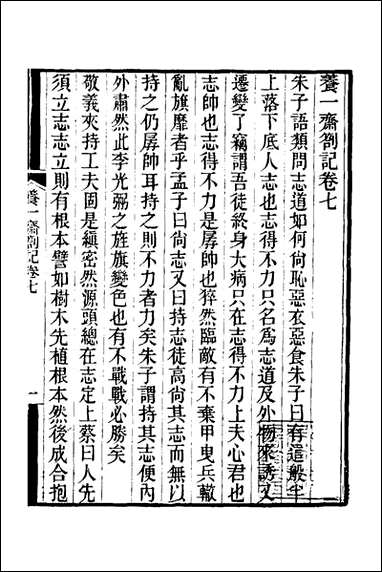 養一齋劄記卷七
朱子語類問志道如何尚恥惡衣惡食朱子曰有這般半
上落下底人志也志得不力只名為志道及外物來誘又
遷變了竊謂吾徒終身大病只在志得不力上夫心君也
志帥也志得不力是孱帥也猝然臨敵有不棄甲曳兵轍
亂旗靡者乎孟子曰尚志又曰持志徒高尚其志而無以
持之仍孱帥耳持之則不力者力矣朱子謂持其志便內
外肅然此李光弼之旌旗變色也有不戰戰必勝矣
敬義夾持工夫固是縝密然源頭總在志定上蔡曰人先
須立志志立則有根本譬如樹木先植根本然後成合抱
養一齋劄記卷七
一